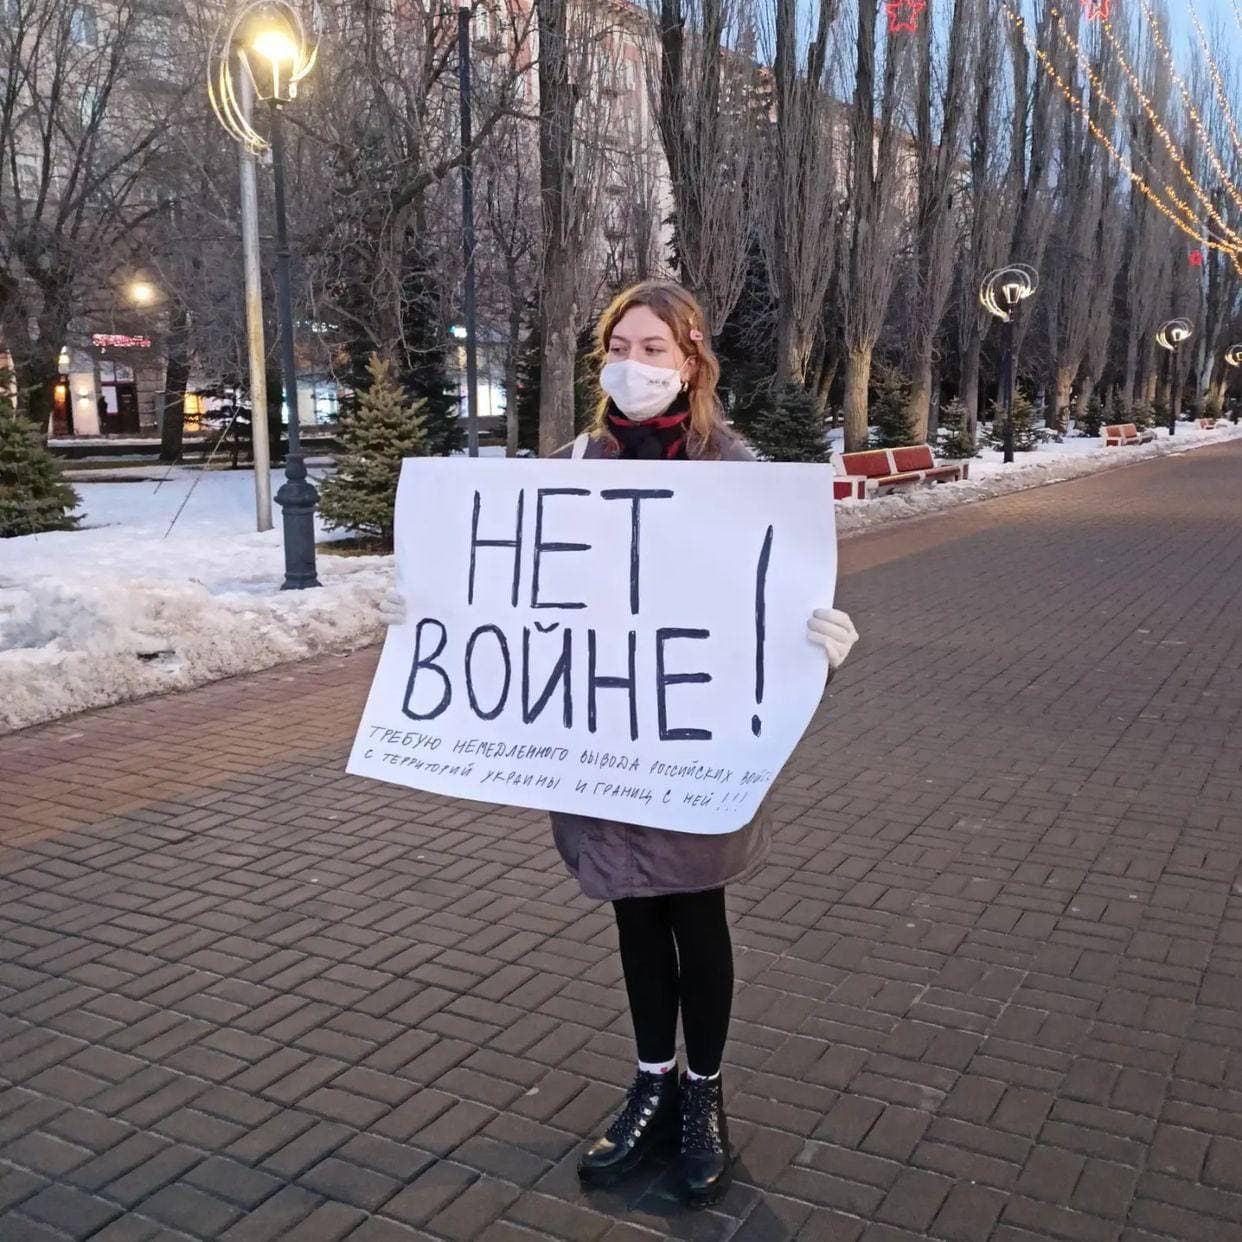 НЕТ
ВОЙНЕ!
ТРЕБУЮ НЕМЕДЛЕННОГО ВЫВОДА РОССИЙСКИХ ВОЙСК
С ТЕРРИТОРИЙ УКРАИНЫ И ГРАНИЦ С НЕЙ!!!